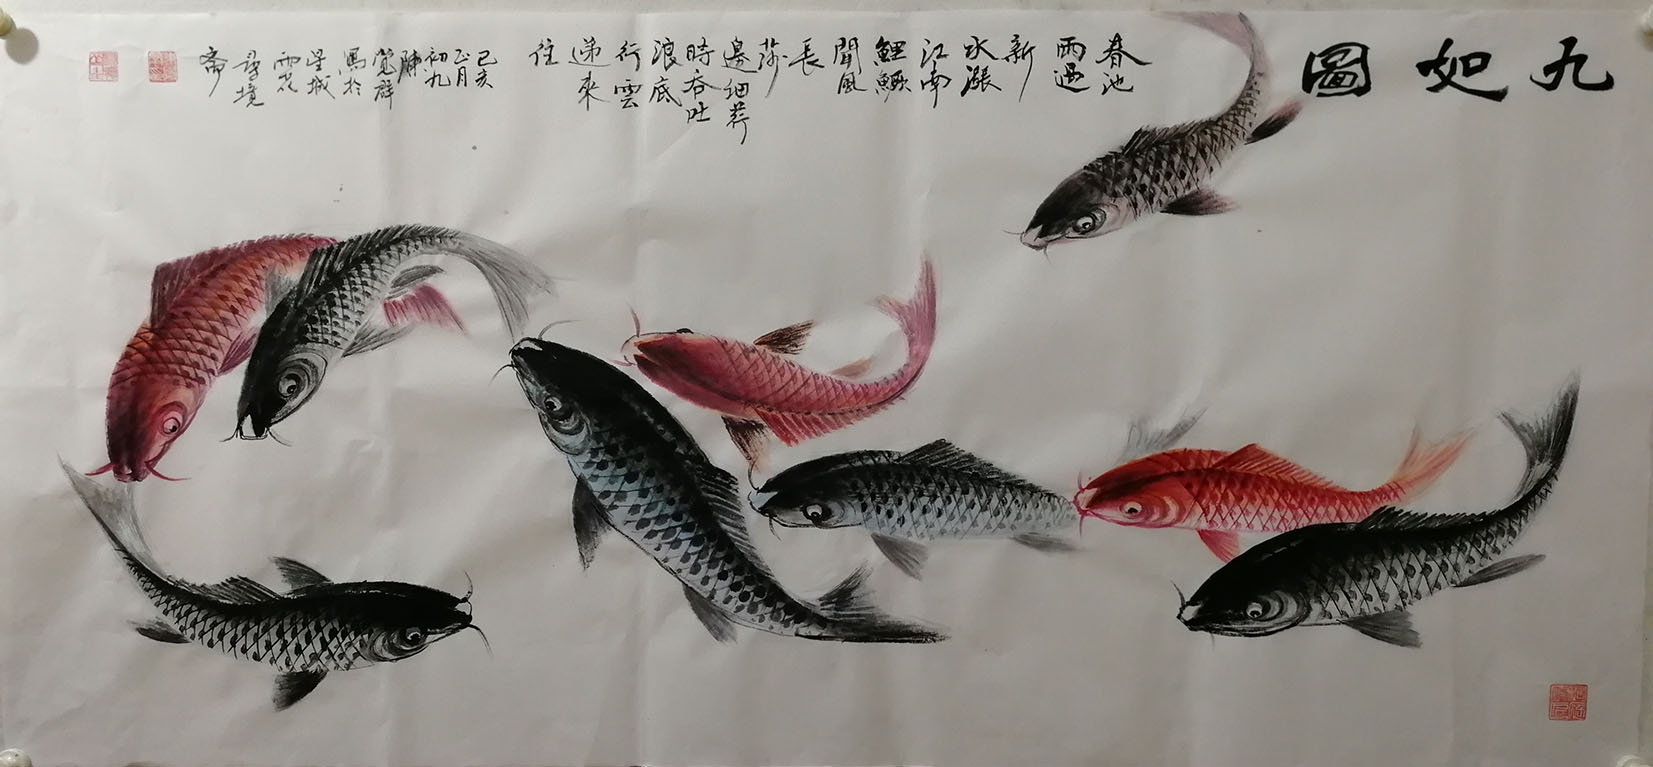 九如圖
春池
雨過
新
水漲
江南
鯉鱖
聞風
長
莎
邊細荇
時吞吐
浪底
行雲
遞來
往
己亥
正月
初九
陳
覺群
寫於
星城
雨花
境
齋